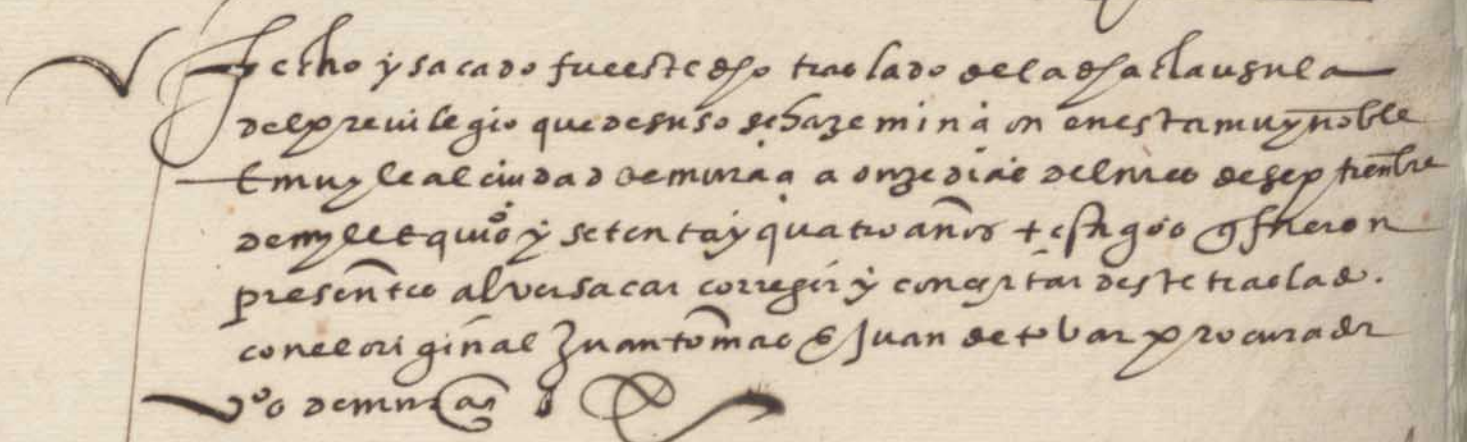 Fecho y sacado fue este dho traslado de la dha clausula
del previlegio que de suso se haze minçion en esta muy noble
E muy leal ciudad de murçia a onze dias del mes de septienbre
de myll E quis y setenta y quatro años testigos q fueron
presentes al ver sacar corregir y conçertar deste traslado
con el original Juan tomas E Juan de tobar procurador
vos de murçia